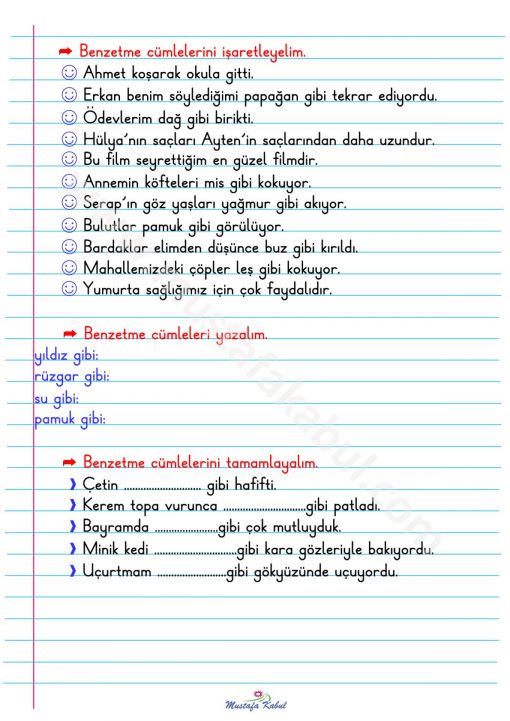 Benzetme cümlelerini işaretleyelim.
Ahmet koşarak okula gitti.
Erkan benim söylediğimi papağan gibi tekrar ediyordu.
Ödevlerim dağ gibi birikti.
Hülya'nın saçları Ayten'in saçlarından daha uzundur.
Bu film seyrettiğim en güzel filmdir.
Annemin köfteleri mis gibi kokuyor.
Serap'ın göz yaşları yağmur gibi akıyor.
Bulutlar pamuk gibi görülüyor.
Bardaklar elimden düşünce buz gibi kırıldı.
Mahallemizdeki çöpler leş gibi kokuyor.
Yumurta sağlığımız için çok faydalıdır.
Benzetme cümleleri yazalım.
yıldız gibi:
rüzgar gibi:
su gibi:
pamuk gibi:
Benzetme cümlelerini tamamlayalım.
Çetin ............................ gibi hafifti.
Kerem topa vurunca ..............................gibi patladı.
Bayramda .......................gibi çok mutluyduk.
Minik kedi ..............................gibi kara gözleriyle bakıyordu.
Uçurtmam .........................gibi gökyüzünde uçuyordu.
mustafakabul.com
Mustafa Kabul